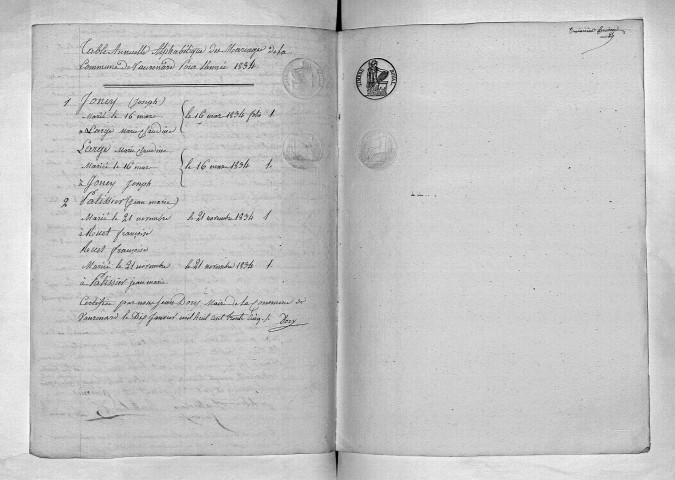 Table Annuelle Alphabétique des Mariages de la
Commune de Vaurenard Pour l'année 1834
1 Joney (Joseph)
Marié le 16 mars le 16 mars 1834 folio 1
a Large Marie Claudine
Large Marie Claudine
Mariée le 16 mars le 16 mars 1834 1
à Joney Joseph
2 Patissier (jean marie)
Marié le 21 novembre le 21 novembre 1834 1
à Ruet françoise
Ruet françoise
Mariée le 21 novembre le 21 novembre 1834 1.
à Patissier jean marie
Certifiée par nous Jean Dory Maire de la commune de
Vaurenard le Dix Janvier mil huit cent trente cinq. Dory
TIMBRE ROYAL